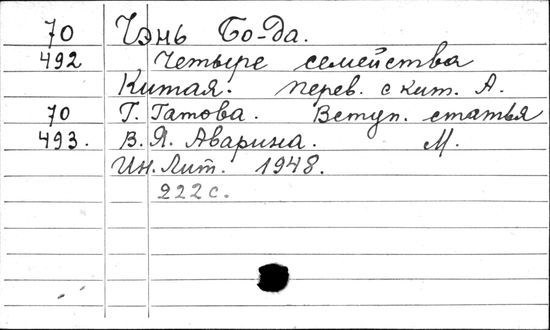 70 Чэнь Бо-да.
492 Четыре семейства
Китая. Перев. с кит. А.
70 Г. Гатова. Вступ. статья
493. В. Я. Аварина. М.
Ин. Лит. 1948.
222 с.